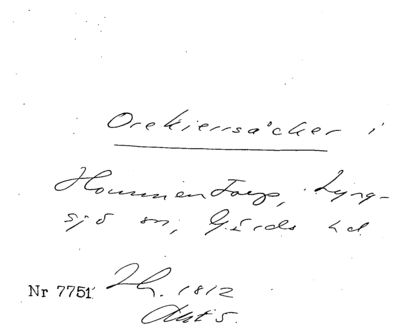 Orekierrsåcker i
Hommentorp, Lyng-
sjö sn, Gärds hd
Nr 7751 Hg. 1812
Akt 5.